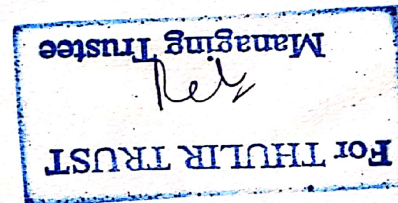 For THULIR TRUST
Managing Trustee